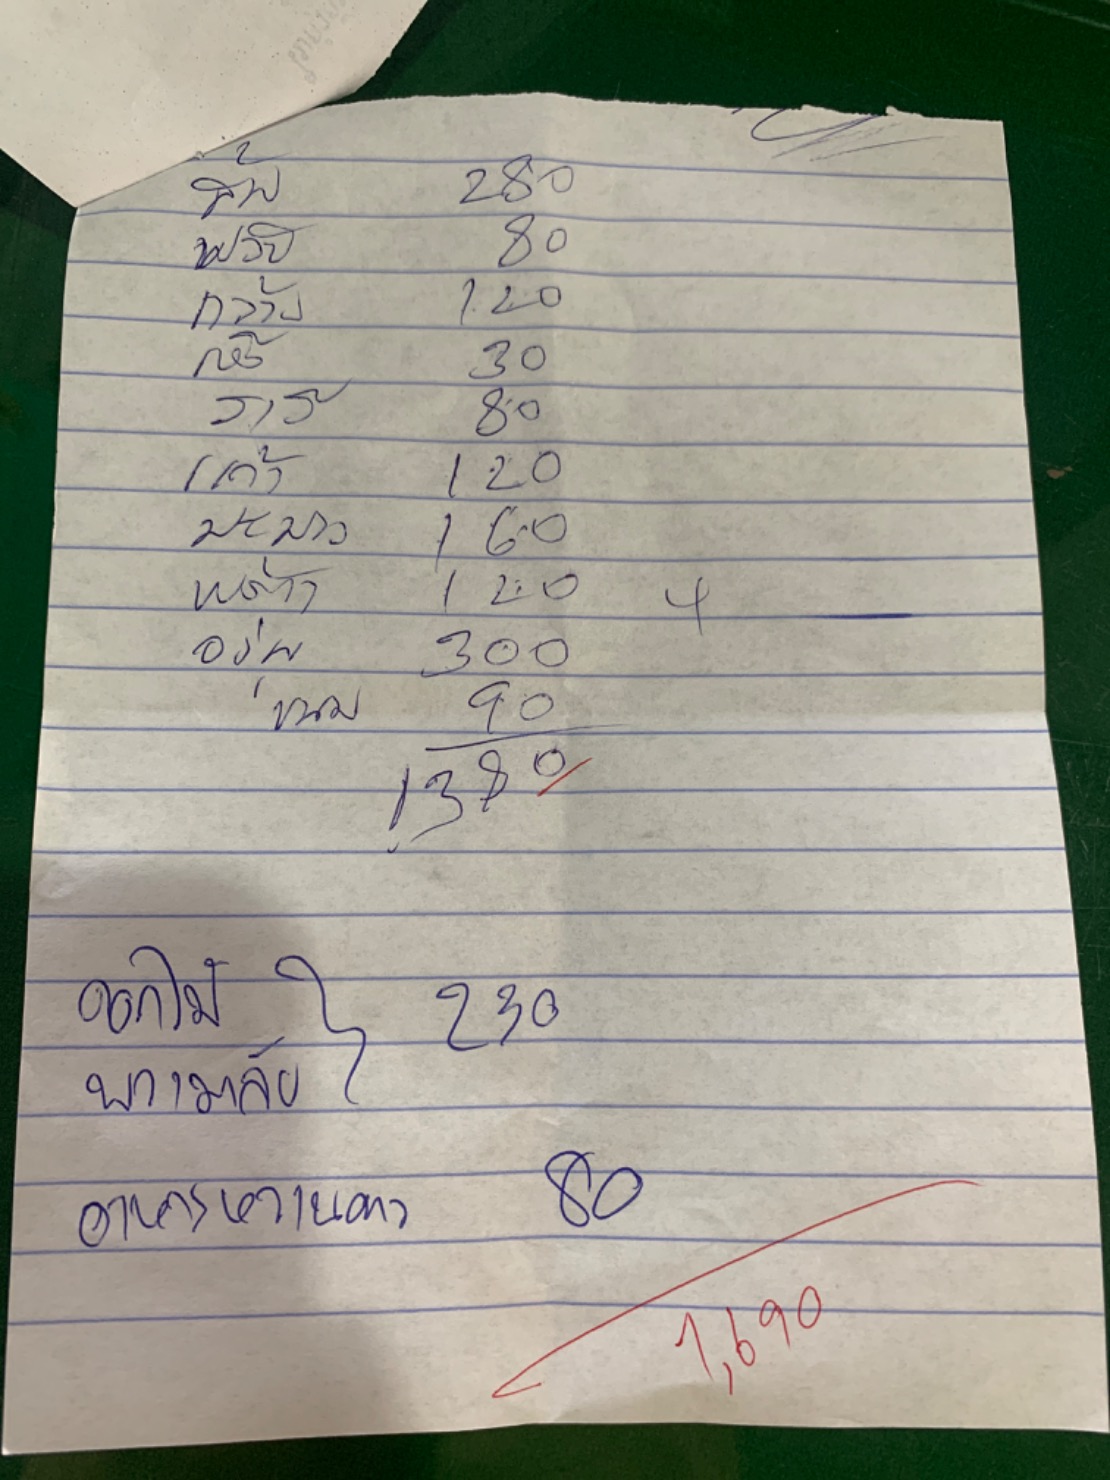 ส้ม 280
ฝรั่ง 80
กล้วย 120
30
สาลี่ 80
120
มะพร้าว 160
120 4
องุ่น 300
ขนม 90
1380
ดอกไม้ } 230
พวงมาลัย
อาหารหวานคาว 80
1,690